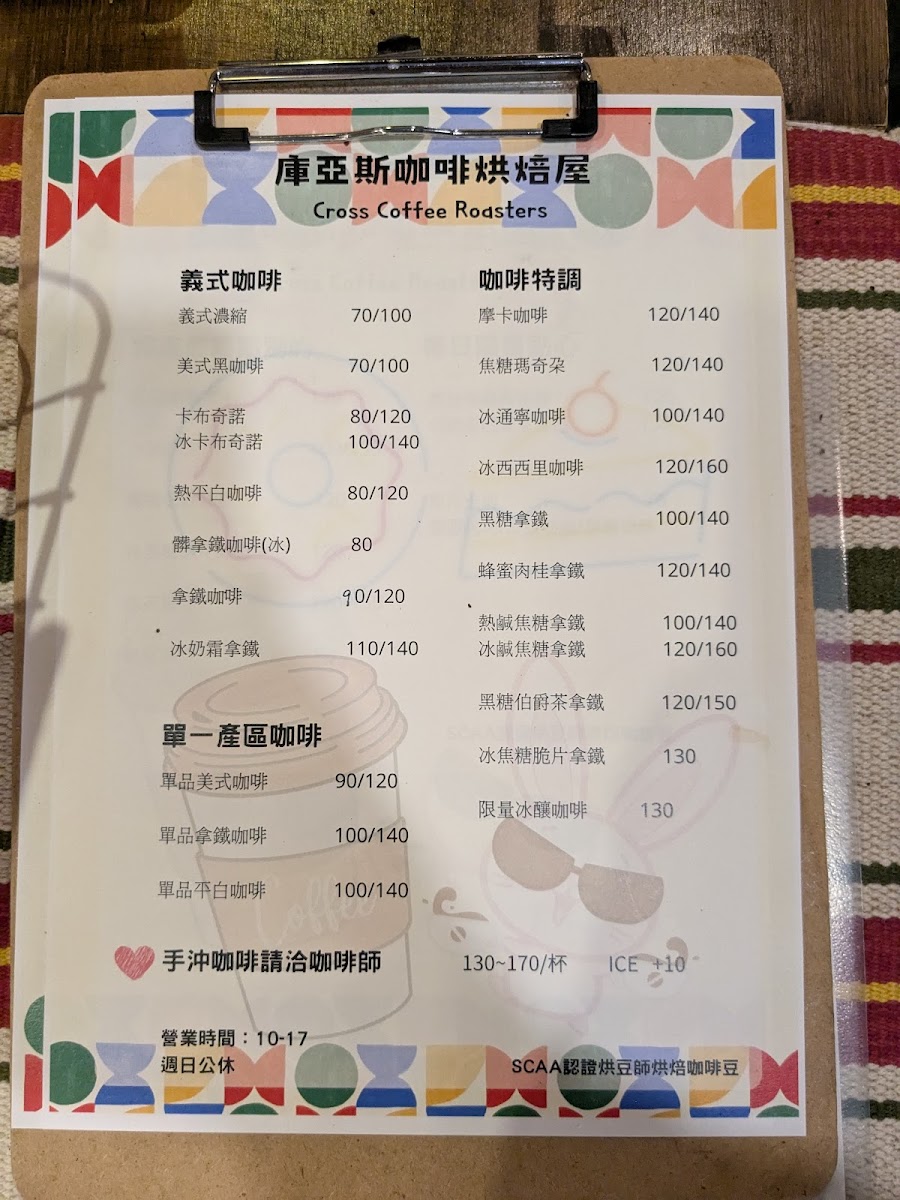 庫亞斯咖啡烘焙屋
Cross Coffee Roasters
義式咖啡
義式濃縮 70/100
美式黑咖啡 70/100
卡布奇諾 80/120
冰卡布奇諾 100/140
熱平白咖啡 80/120
髒拿鐵咖啡(冰) 80
拿鐵咖啡 90/120
冰奶霜拿鐵 110/140
單一產區咖啡
單品美式咖啡 90/120
單品拿鐵咖啡 100/140
單品平白咖啡 100/140
咖啡特調
摩卡咖啡 120/140
焦糖瑪奇朶 120/140
冰通寧咖啡 100/140
冰西西里咖啡 120/160
黑糖拿鐵 100/140
蜂蜜肉桂拿鐵 120/140
熱鹹焦糖拿鐵 100/140
冰鹹焦糖拿鐵 120/160
黑糖伯爵茶拿鐵 120/150
冰焦糖脆片拿鐵 130
限量冰釀咖啡 130
Coffee
手沖咖啡請洽咖啡師 130~170/杯 ICE +10
營業時間：10-17
週日公休
SCAA認證烘豆師烘焙咖啡豆